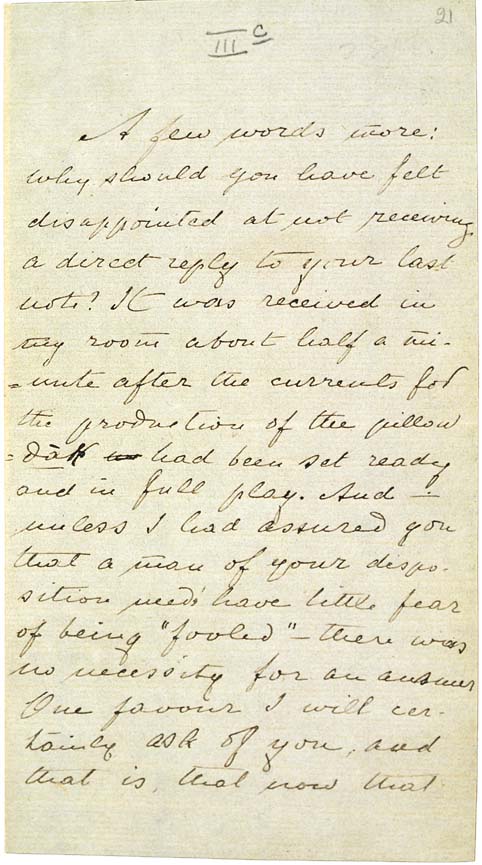 21
III C
A few words more:
why should you have felt
disappointed at not receiving
a direct reply to your last
note? It was received in
my room about half a mi-
=nute after the currents for
the production of the pillow
=dâk had been set ready
and in full play. And —
unless I had assured you
that a man of your dispo-
sition need have little fear
of being "fooled" — there was
no necessity for an answer
One favour I will cer-
tainly ask of you, and
that is, that now that